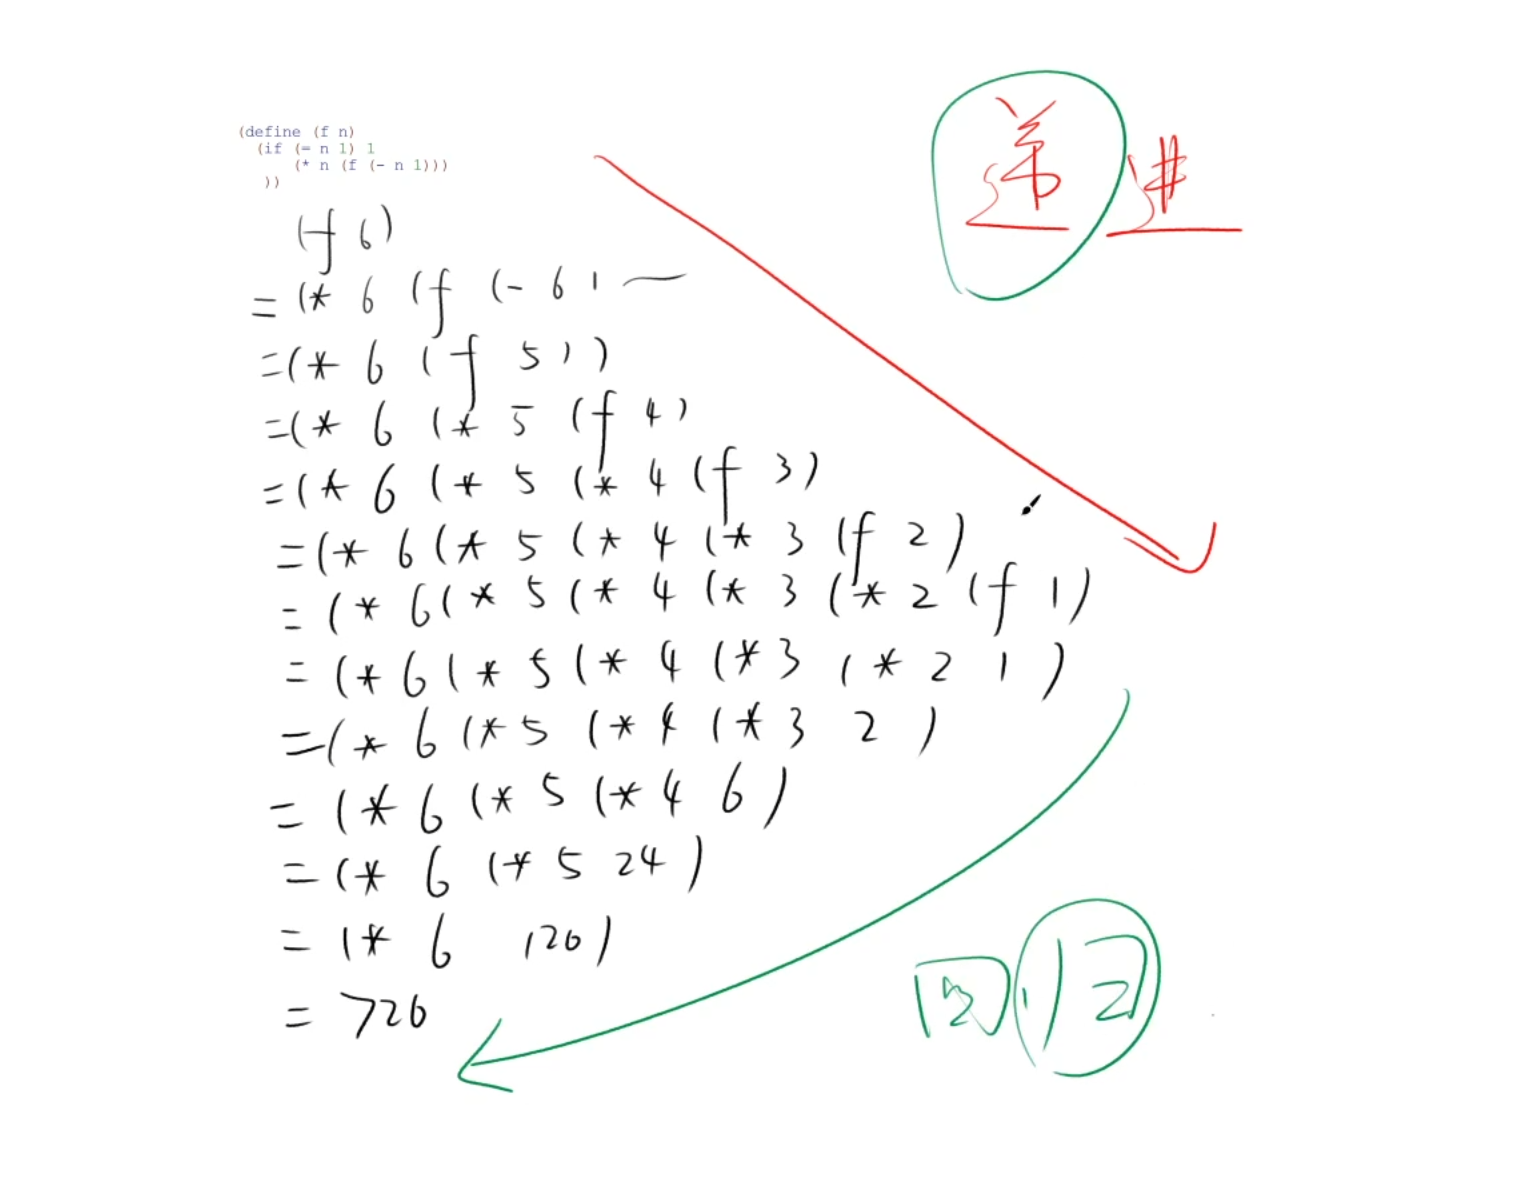 (define (f n)
(if (= n 1) 1
(* n (f (- n 1)))
))
递进
(f 6)
= (* 6 (f (- 6 1
=(* 6 (f 5))
=(* 6 (* 5 (f 4)
=(* 6 (* 5 (* 4 (f 3)
=(* 6 (* 5 (* 4 (* 3 (f 2)
= (* 6 (* 5 (* 4 (* 3 (* 2 (f 1)
= (* 6 (* 5 (* 4 (* 3 (* 2 1 )
=(* 6 (* 5 (* 4 (* 3 2 )
= (* 6 (* 5 (* 4 6 )
= (* 6 (* 5 24 )
= (* 6 120)
= 720
回归